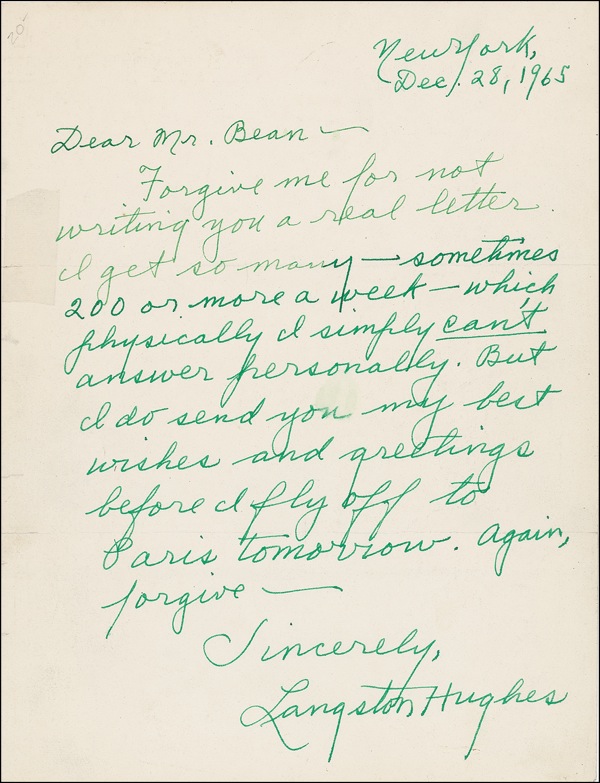 20-
New York,
Dec. 28, 1965
Dear Mr. Bean —
Forgive me for not
writing you a real letter
I get so many — sometimes
200 or more a week — which
physically I simply can't
answer personally. But
I do send you my best
wishes and greetings
before I fly off to
Paris tomorrow. Again,
forgive —
Sincerely,
Langston Hughes